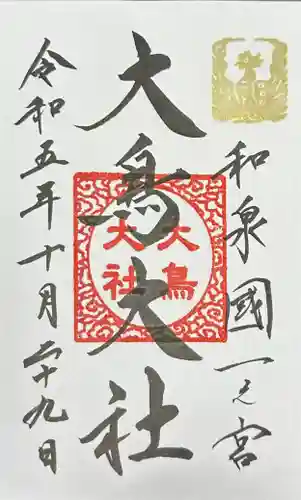 和泉國一之宮
大鳥大社
大鳥大社
令和五年十月二十九日